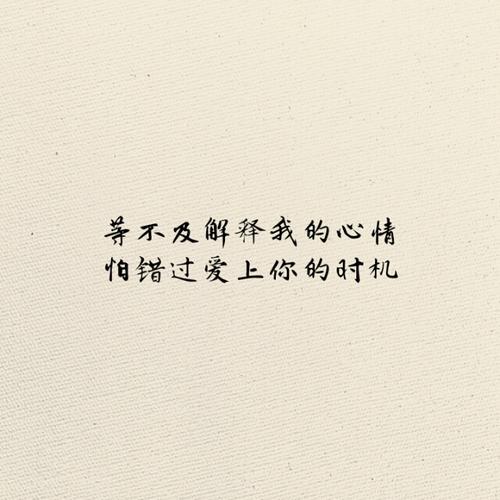 等不及解释我的心情
怕错过爱上你的时机